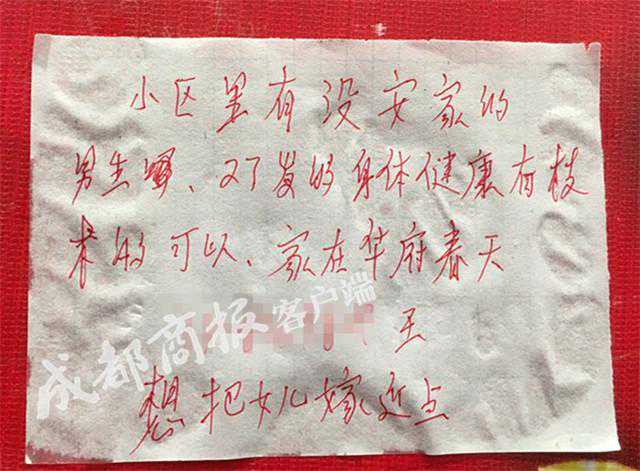 小区里有没安家的
男生嘛、27岁的身体健康有技
术的可以、家在华府春天
王
想把女儿嫁近点
成都商报客户端